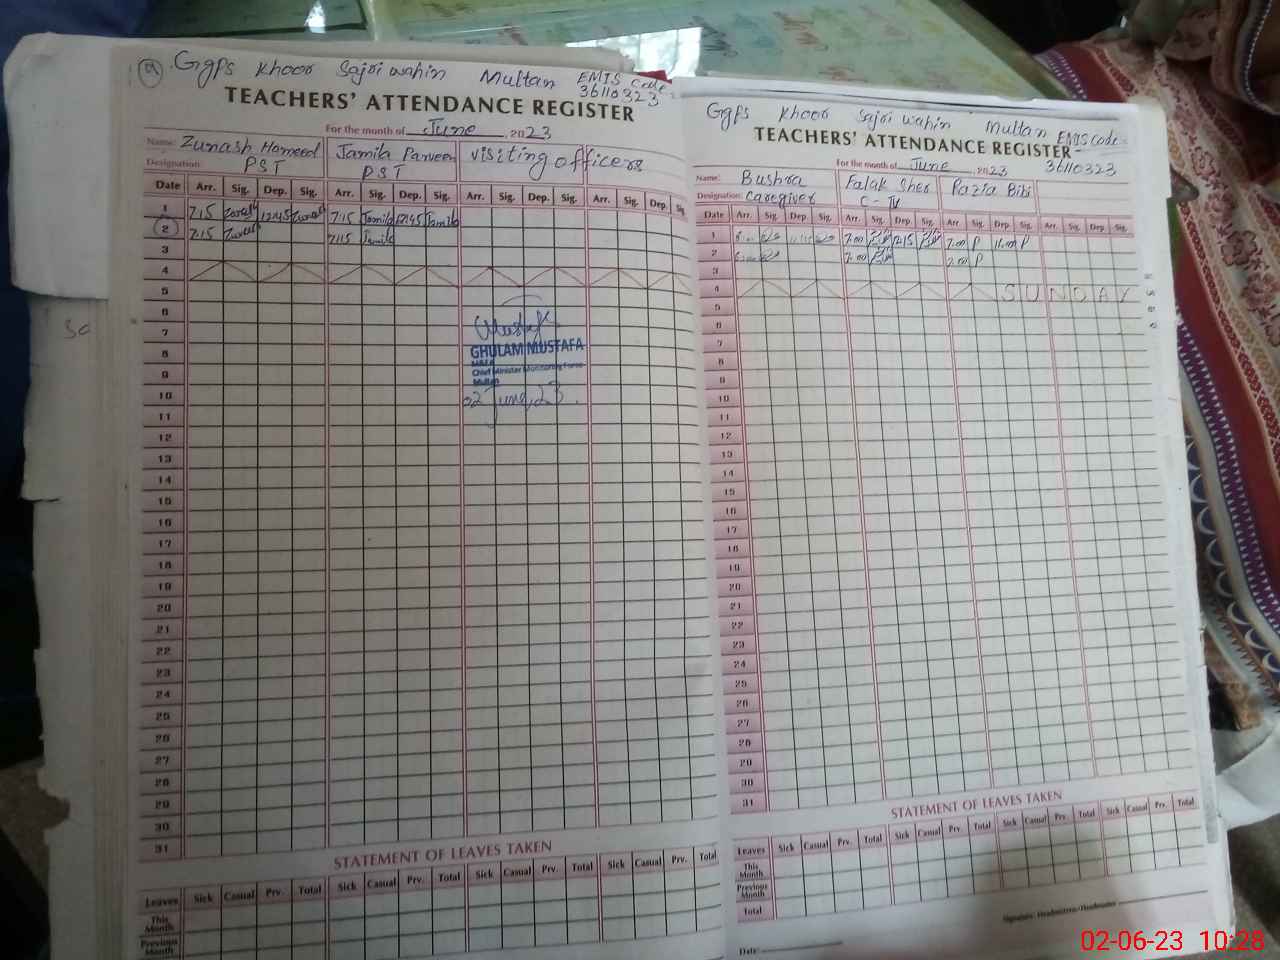 Ggps Khoor Sajri wahin Multan EMIS code:
36110323
TEACHERS' ATTENDANCE REGISTER
For the month of June, 2023
Name: Zunash Hameed Jamila Parveen visiting officers
Designation: PST PST
Date Arr. Sig. Dep. Sig. Arr. Sig. Dep. Sig. Arr. Sig. Dep. Sig. Arr. Sig. Dep. Sig.
1 7:15 Zunash 12:45 Zunash 7:15 Jamila 12:45 Jamila
2 7:15 Zunash 7:15 Jamila
3
4
5
6
7
8
9
10
11
12
13
14
15
16
17
18
19
20
21
22
23
24
25
26
27
28
29
30
31
Mustafa
GHULAM MUSTAFA
Chief Minister Monitoring Force
Multan
02 June, 23
STATEMENT OF LEAVES TAKEN
Leaves Sick Casual Prv. Total Sick Casual Prv. Total Sick Casual Prv. Total Sick Casual Prv. Total
This Month
Previous Month
Ggps Khoor Sajri wahin Multan EMIS code:-
36110323
TEACHERS' ATTENDANCE REGISTER
For the month of June 2023
Name: Bushra Falak Sher Razia Bibi
Designation: caregiver C-IV
Date Arr. Sig. Dep. Sig. Arr. Sig. Dep. Sig. Arr. Sig. Dep. Sig. Arr. Sig. Dep. Sig.
1 8:00 7:00 12:15 7:00 P 11:00 P
2 8:00 7:00 7:00 P
3
4 SUNDAY
5
6
7
8
9
10
11
12
13
14
15
16
17
18
19
20
21
22
23
24
25
26
27
28
29
30
31
STATEMENT OF LEAVES TAKEN
Leaves Sick Casual Prv. Total Sick Casual Prv. Total Sick Casual Prv. Total Sick Casual Prv. Total
This Month
Previous Month
Total
Signature: Headmistress/Headmaster
Date:
02-06-23 10:28